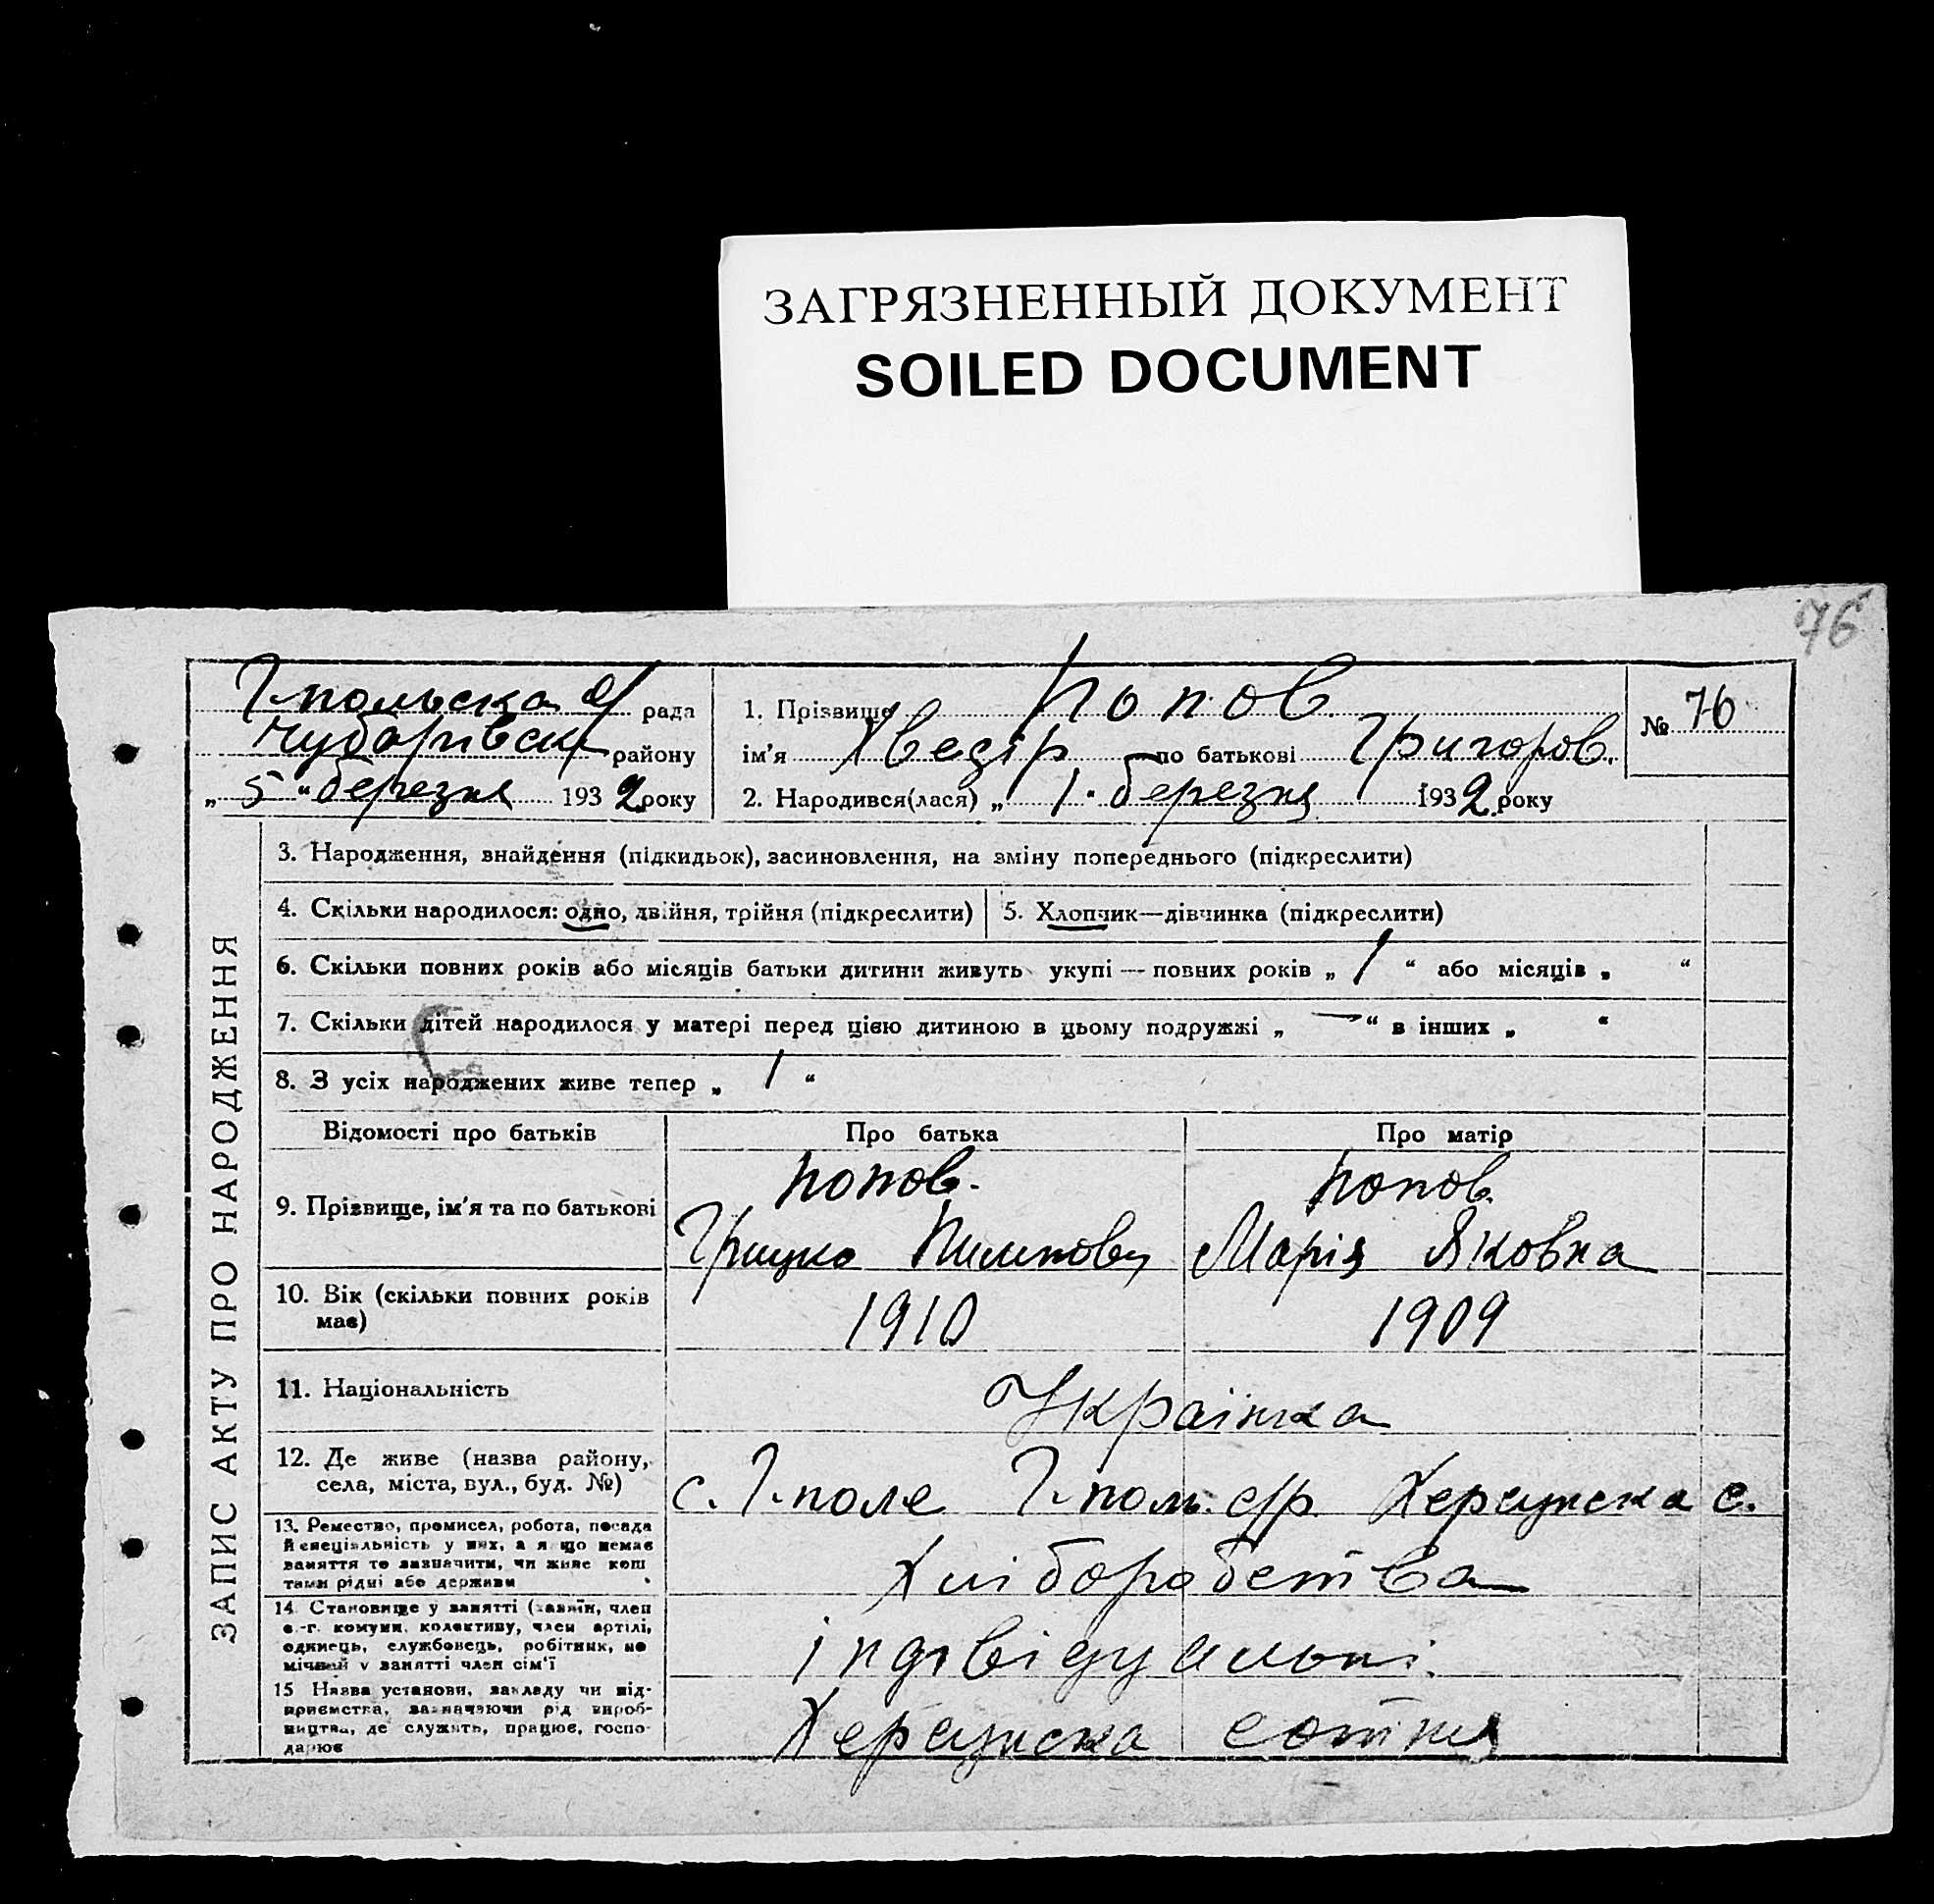 ЗАГРЯЗНЕННЫЙ ДОКУМЕНТ
SOILED DOCUMENT
76
Г-польска с/ рада
Чубарівськ району
„ 5 “ березня 1932 року
1. Прізвище Попов
ім'я Хведір по батькові Григоров.
2. Народився(лася) „ 1. березня 1932 року
№ 76
ЗАПИС АКТУ ПРО НАРОДЖЕННЯ
3. Народження, знайдення (підкидьок), засиновлення, на зміну попереднього (підкреслити)
4. Скільки народилося: одно, двійня, трійня (підкреслити)
5. Хлопчик—дівчинка (підкреслити)
6. Скільки повних років або місяців батьки дитини живуть укупі — повних років „ 1 “ або місяців „ “
7. Скільки дітей народилося у матері перед цією дитиною в цьому подружжі „ — “ в інших „ “
8. З усіх народжених живе тепер „ 1 “
Відомості про батьків Про батька Про матір
9. Прізвище, ім'я та по батькові
Попов. Попов.
Грицко Пилипович Марія Яковна
10. Вік (скільки повних років
має)
1910 1909
11. Національність
Українка
12. Де живе (назва району,
села, міста, вул., буд. №)
с. Г-поле Г-поль. с/р. с.
13. Ремество, промисел, робота, посада
й спеціяльність у них, а якщо немає
заняття то зазначити, чи живе кош
тами рідні або держави
Хліборобства
14. Становище у занятті (хазяїн, член
с.-г. комуни, колективу, член артілі,
одинець, службовець, робітник, по
мічний у занятті член сім'ї
індівідуальні.
15 Назва установи, закладу чи під-
приємства, зазначаючи рід вироб-
ництва, де служить, працює, госпо-
дарює
сотня